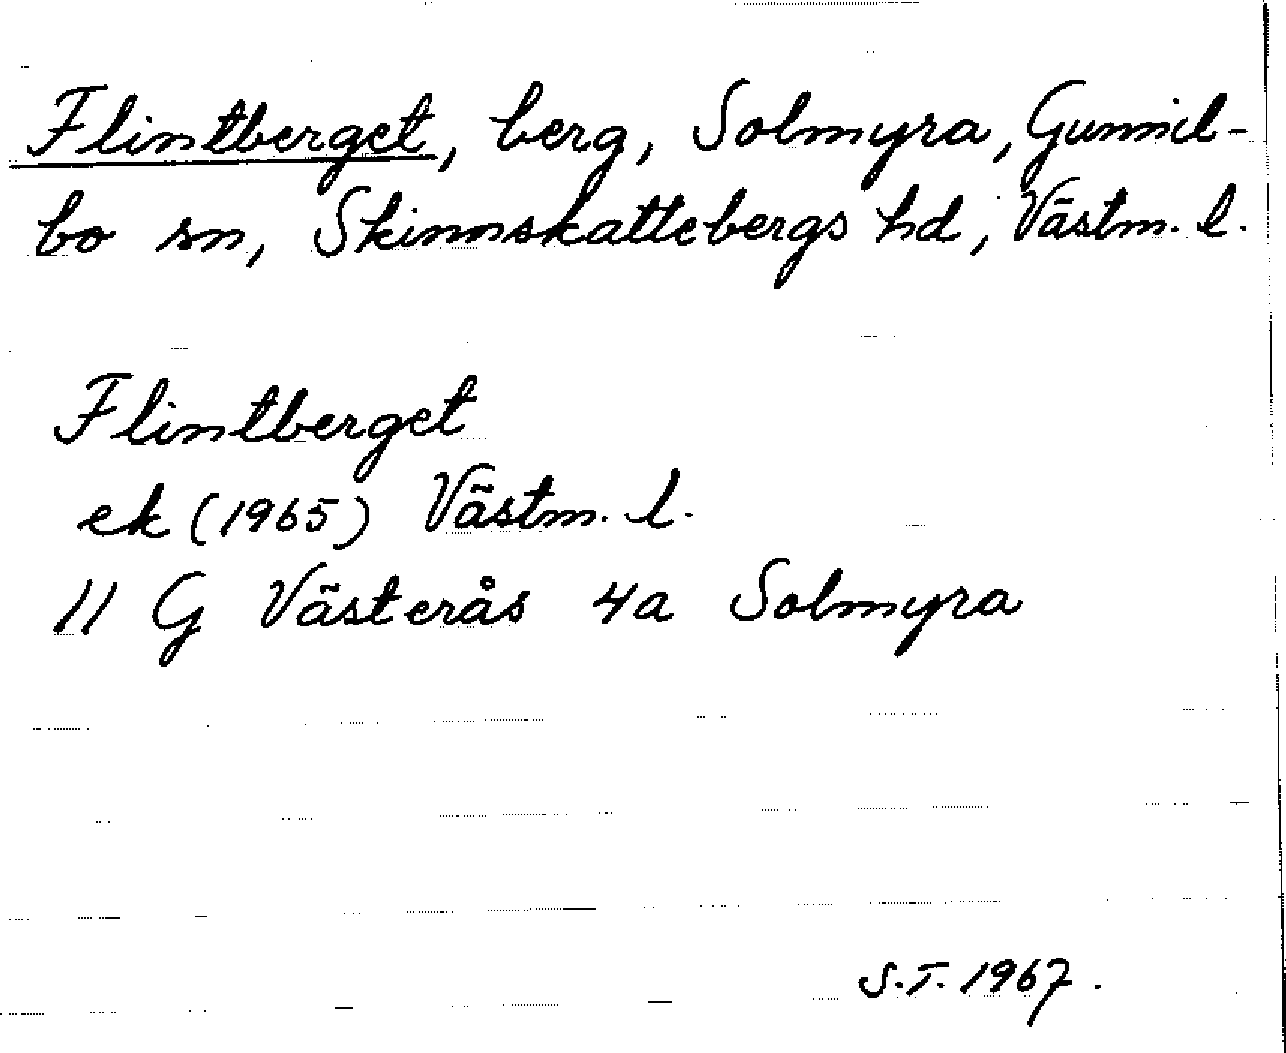 Flintberget, berg, Solmyra, Gunnil-
bo sn, Skinnskattebergs hd, Västm. l.
Flintberget
ek (1965) Västm. l.
11 G Västerås 4a Solmyra
S.T. 1967.